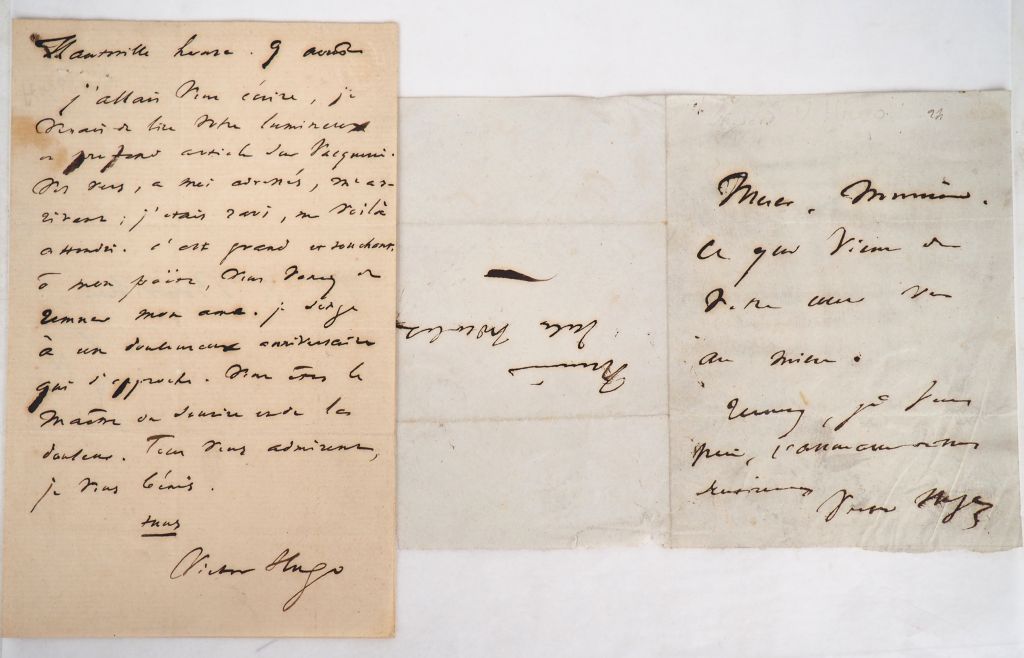 Hauteville house. 9 août
j'allais vous écrire, je
venais de lire votre lumineux
et profond article sur Vacquerie.
Vos vers, à moi adressés, m'ar-
rivent ; j'étais ravi, me voilà
attendri. c'est grand et touchant.
à mon
vous venez de
remuer mon âme. je songe
à un douloureux anniversaire
qui s'approche. Vous êtes le
maître du sourire et de la
douleur. Tous vous admirent,
je vous bénis.
tuus
Victor Hugo
Merci, Monsieur.
Ce qui vient de
votre cœur va
au mien.
je vous
prie,
Victor Hugo